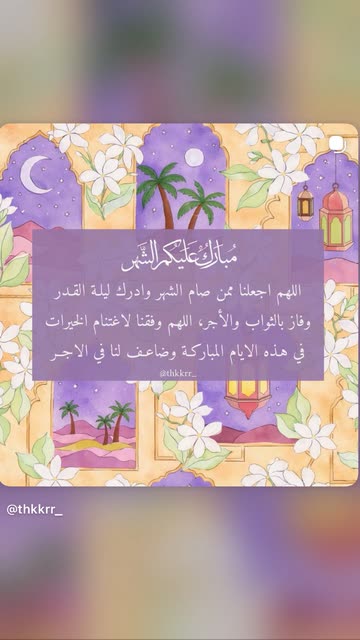 مُبَارَكٌ عَلَيْكُم الشَّهر
اللهم اجعلنا ممن صام الشهر وادرك ليلة القدر
وفاز بالثواب والأجر، اللهم وفقنا لاغتنام الخيرات
في هذه الايام المباركة وضاعف لنا في الاجر
@thkkrr_
@thkkrr_